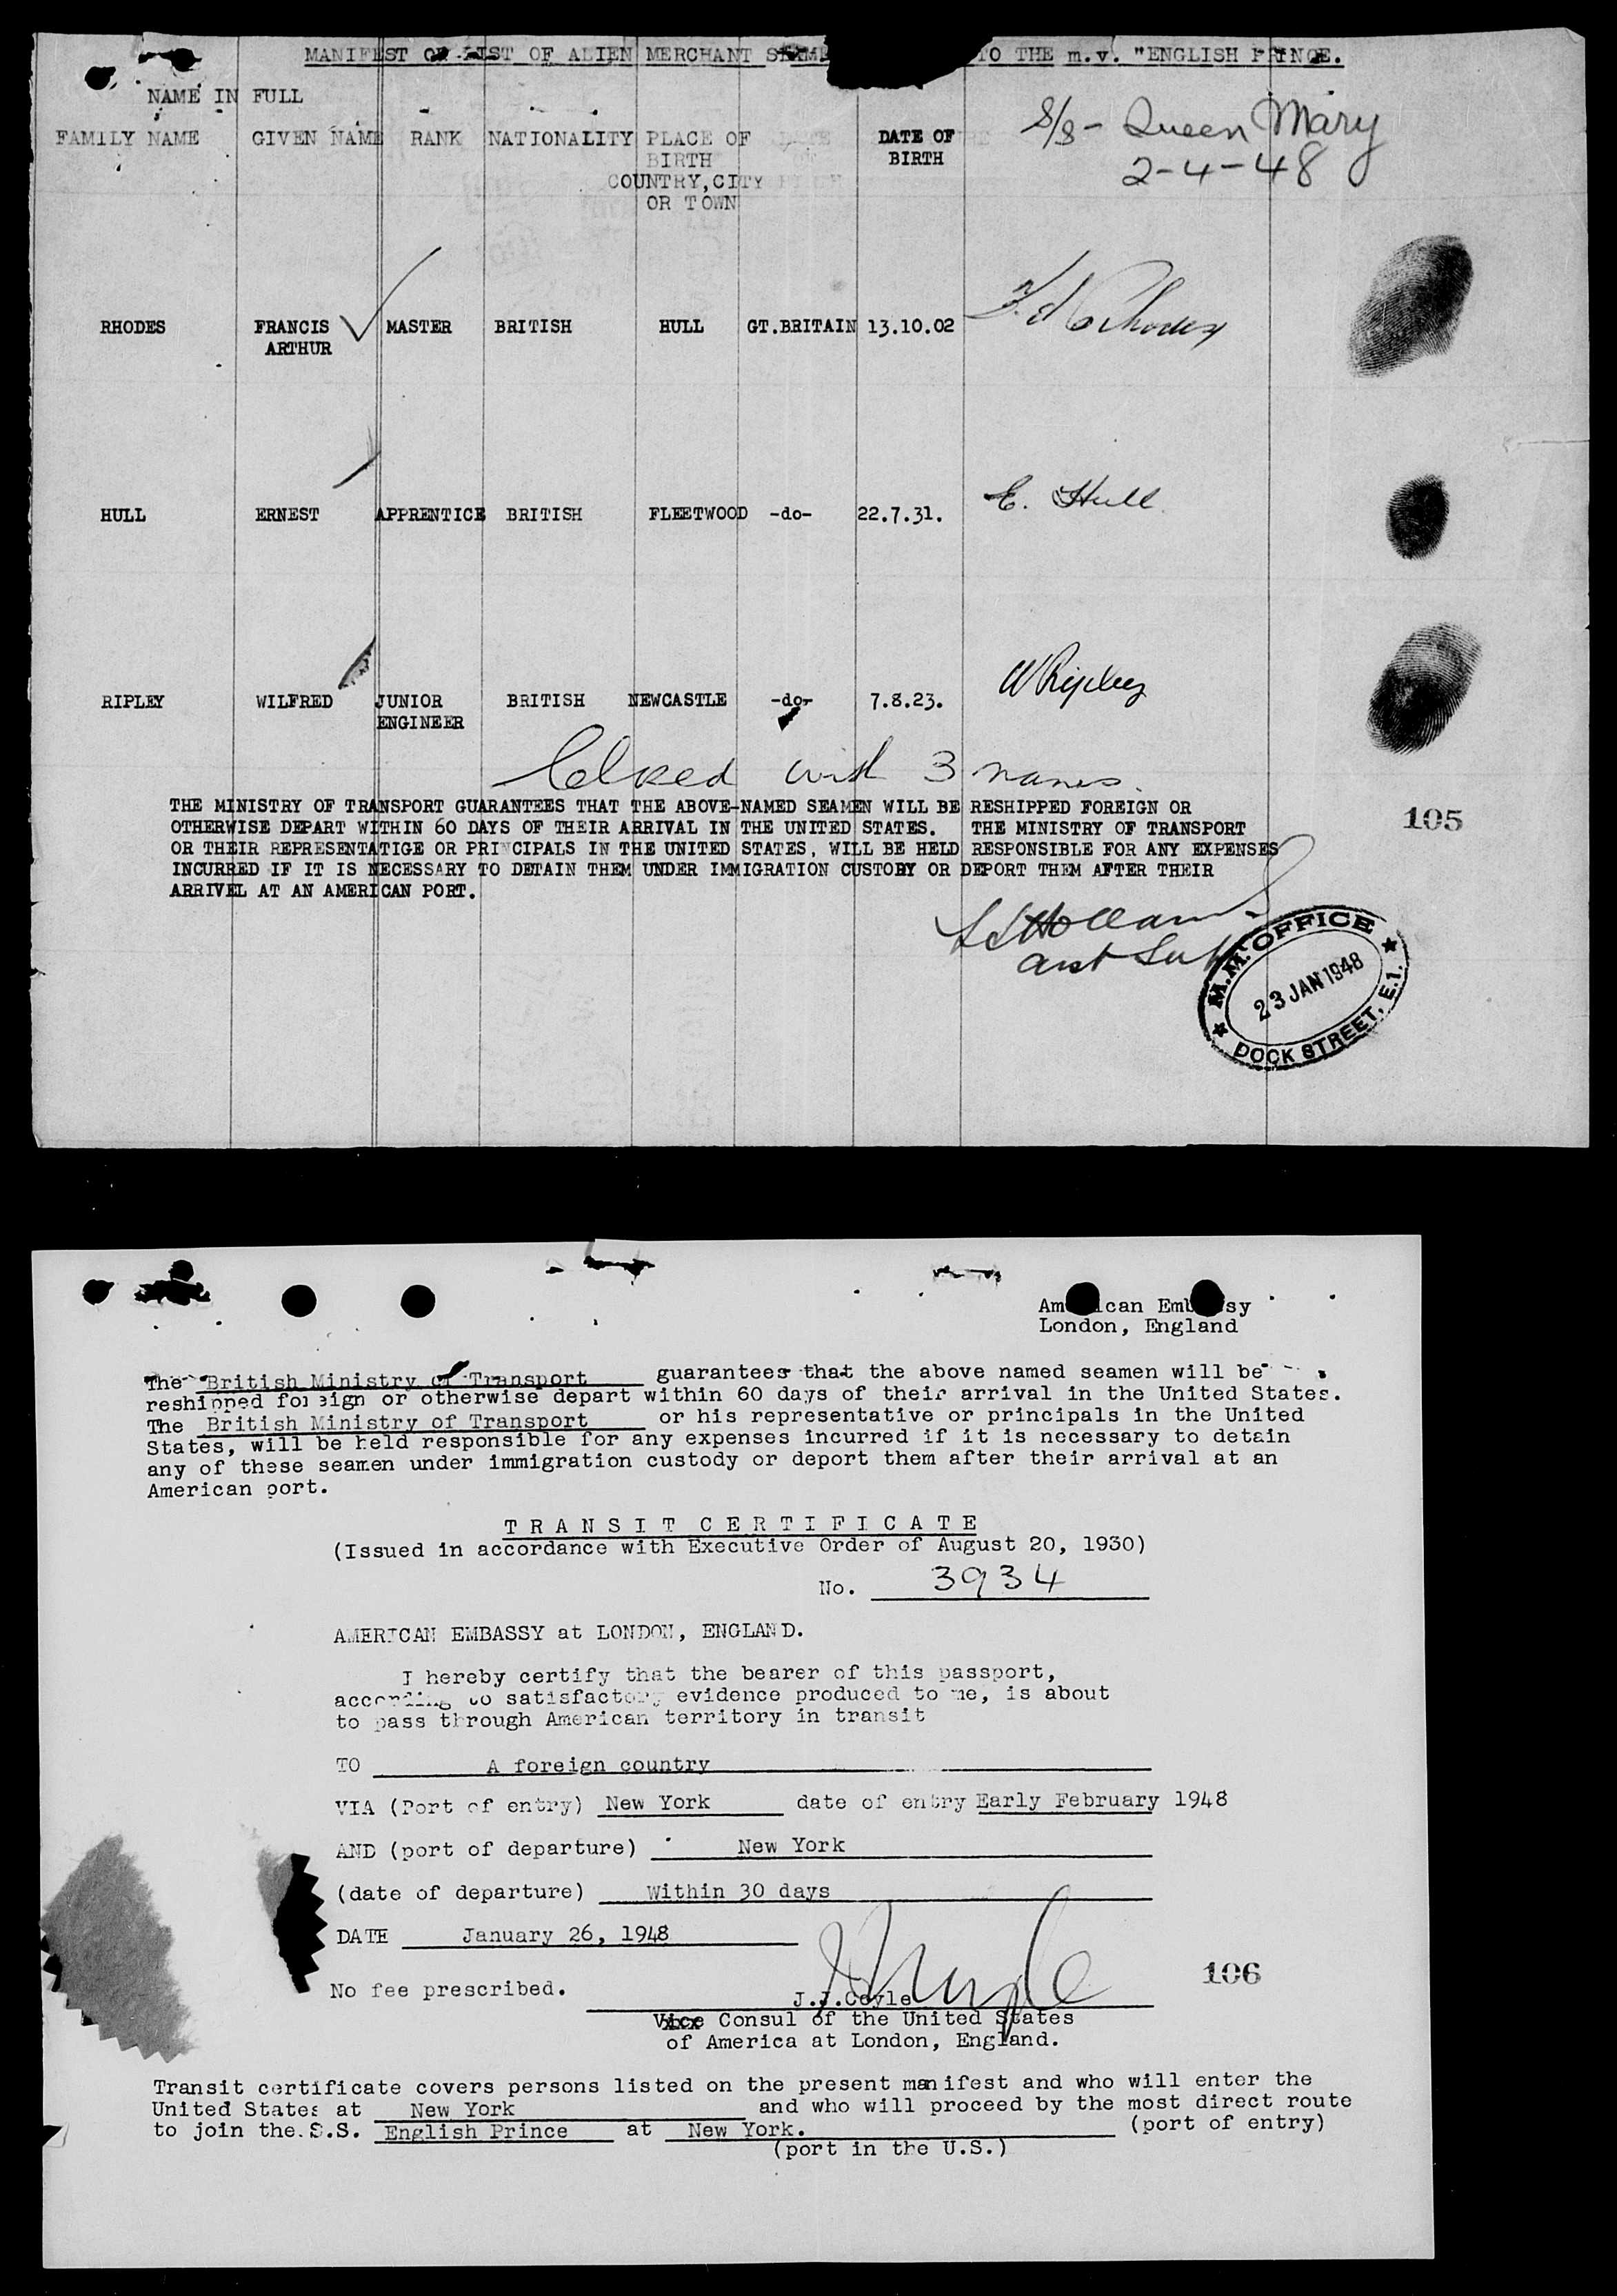 MANIFEST OR LIST OF ALIEN MERCHANT TO THE m.v. "ENGLISH PRINCE.
NAME IN FULL
FAMILY NAME GIVEN NAME RANK NATIONALITY PLACE OF BIRTH COUNTRY, CITY OR TOWN DATE OF BIRTH
S/S - Queen Mary
2-4-48
RHODES FRANCIS ARTHUR MASTER BRITISH HULL GT.BRITAIN 13.10.02
HULL ERNEST APPRENTICE BRITISH FLEETWOOD -do- 22.7.31. E. Hull
RIPLEY WILFRED JUNIOR ENGINEER BRITISH NEWCASTLE -do- 7.8.23. W Ripley
Closed with 3 names.
THE MINISTRY OF TRANSPORT GUARANTEES THAT THE ABOVE-NAMED SEAMEN WILL BE RESHIPPED FOREIGN OR
OTHERWISE DEPART WITHIN 60 DAYS OF THEIR ARRIVAL IN THE UNITED STATES. THE MINISTRY OF TRANSPORT
OR THEIR REPRESENTATIGE OR PRINCIPALS IN THE UNITED STATES, WILL BE HELD RESPONSIBLE FOR ANY EXPENSES
INCURRED IF IT IS NECESSARY TO DETAIN THEM UNDER IMMIGRATION CUSTODY OR DEPORT THEM AFTER THEIR
ARRIVEL AT AN AMERICAN PORT.
105
M.M. OFFICE
23 JAN 1948
DOCK STREET, E.1.
American Embassy
London, England
The British Ministry of Transport guarantees that the above named seamen will be
reshipped foreign or otherwise depart within 60 days of their arrival in the United States.
The British Ministry of Transport or his representative or principals in the United
States, will be held responsible for any expenses incurred if it is necessary to detain
any of these seamen under immigration custody or deport them after their arrival at an
American port.
TRANSIT CERTIFICATE
(Issued in accordance with Executive Order of August 20, 1930)
No. 3934
AMERICAN EMBASSY at LONDON, ENGLAND.
I hereby certify that the bearer of this passport,
according to satisfactory evidence produced to me, is about
to pass through American territory in transit
TO A foreign country
VIA (Port of entry) New York date of entry Early February 1948
AND (port of departure) New York
(date of departure) Within 30 days
DATE January 26, 1948
No fee prescribed.
J.J.Coyle
106
Vice Consul of the United States
of America at London, England.
Transit certificate covers persons listed on the present manifest and who will enter the
United States at New York and who will proceed by the most direct route
to join the S.S. English Prince at New York. (port of entry)
(port in the U.S.)